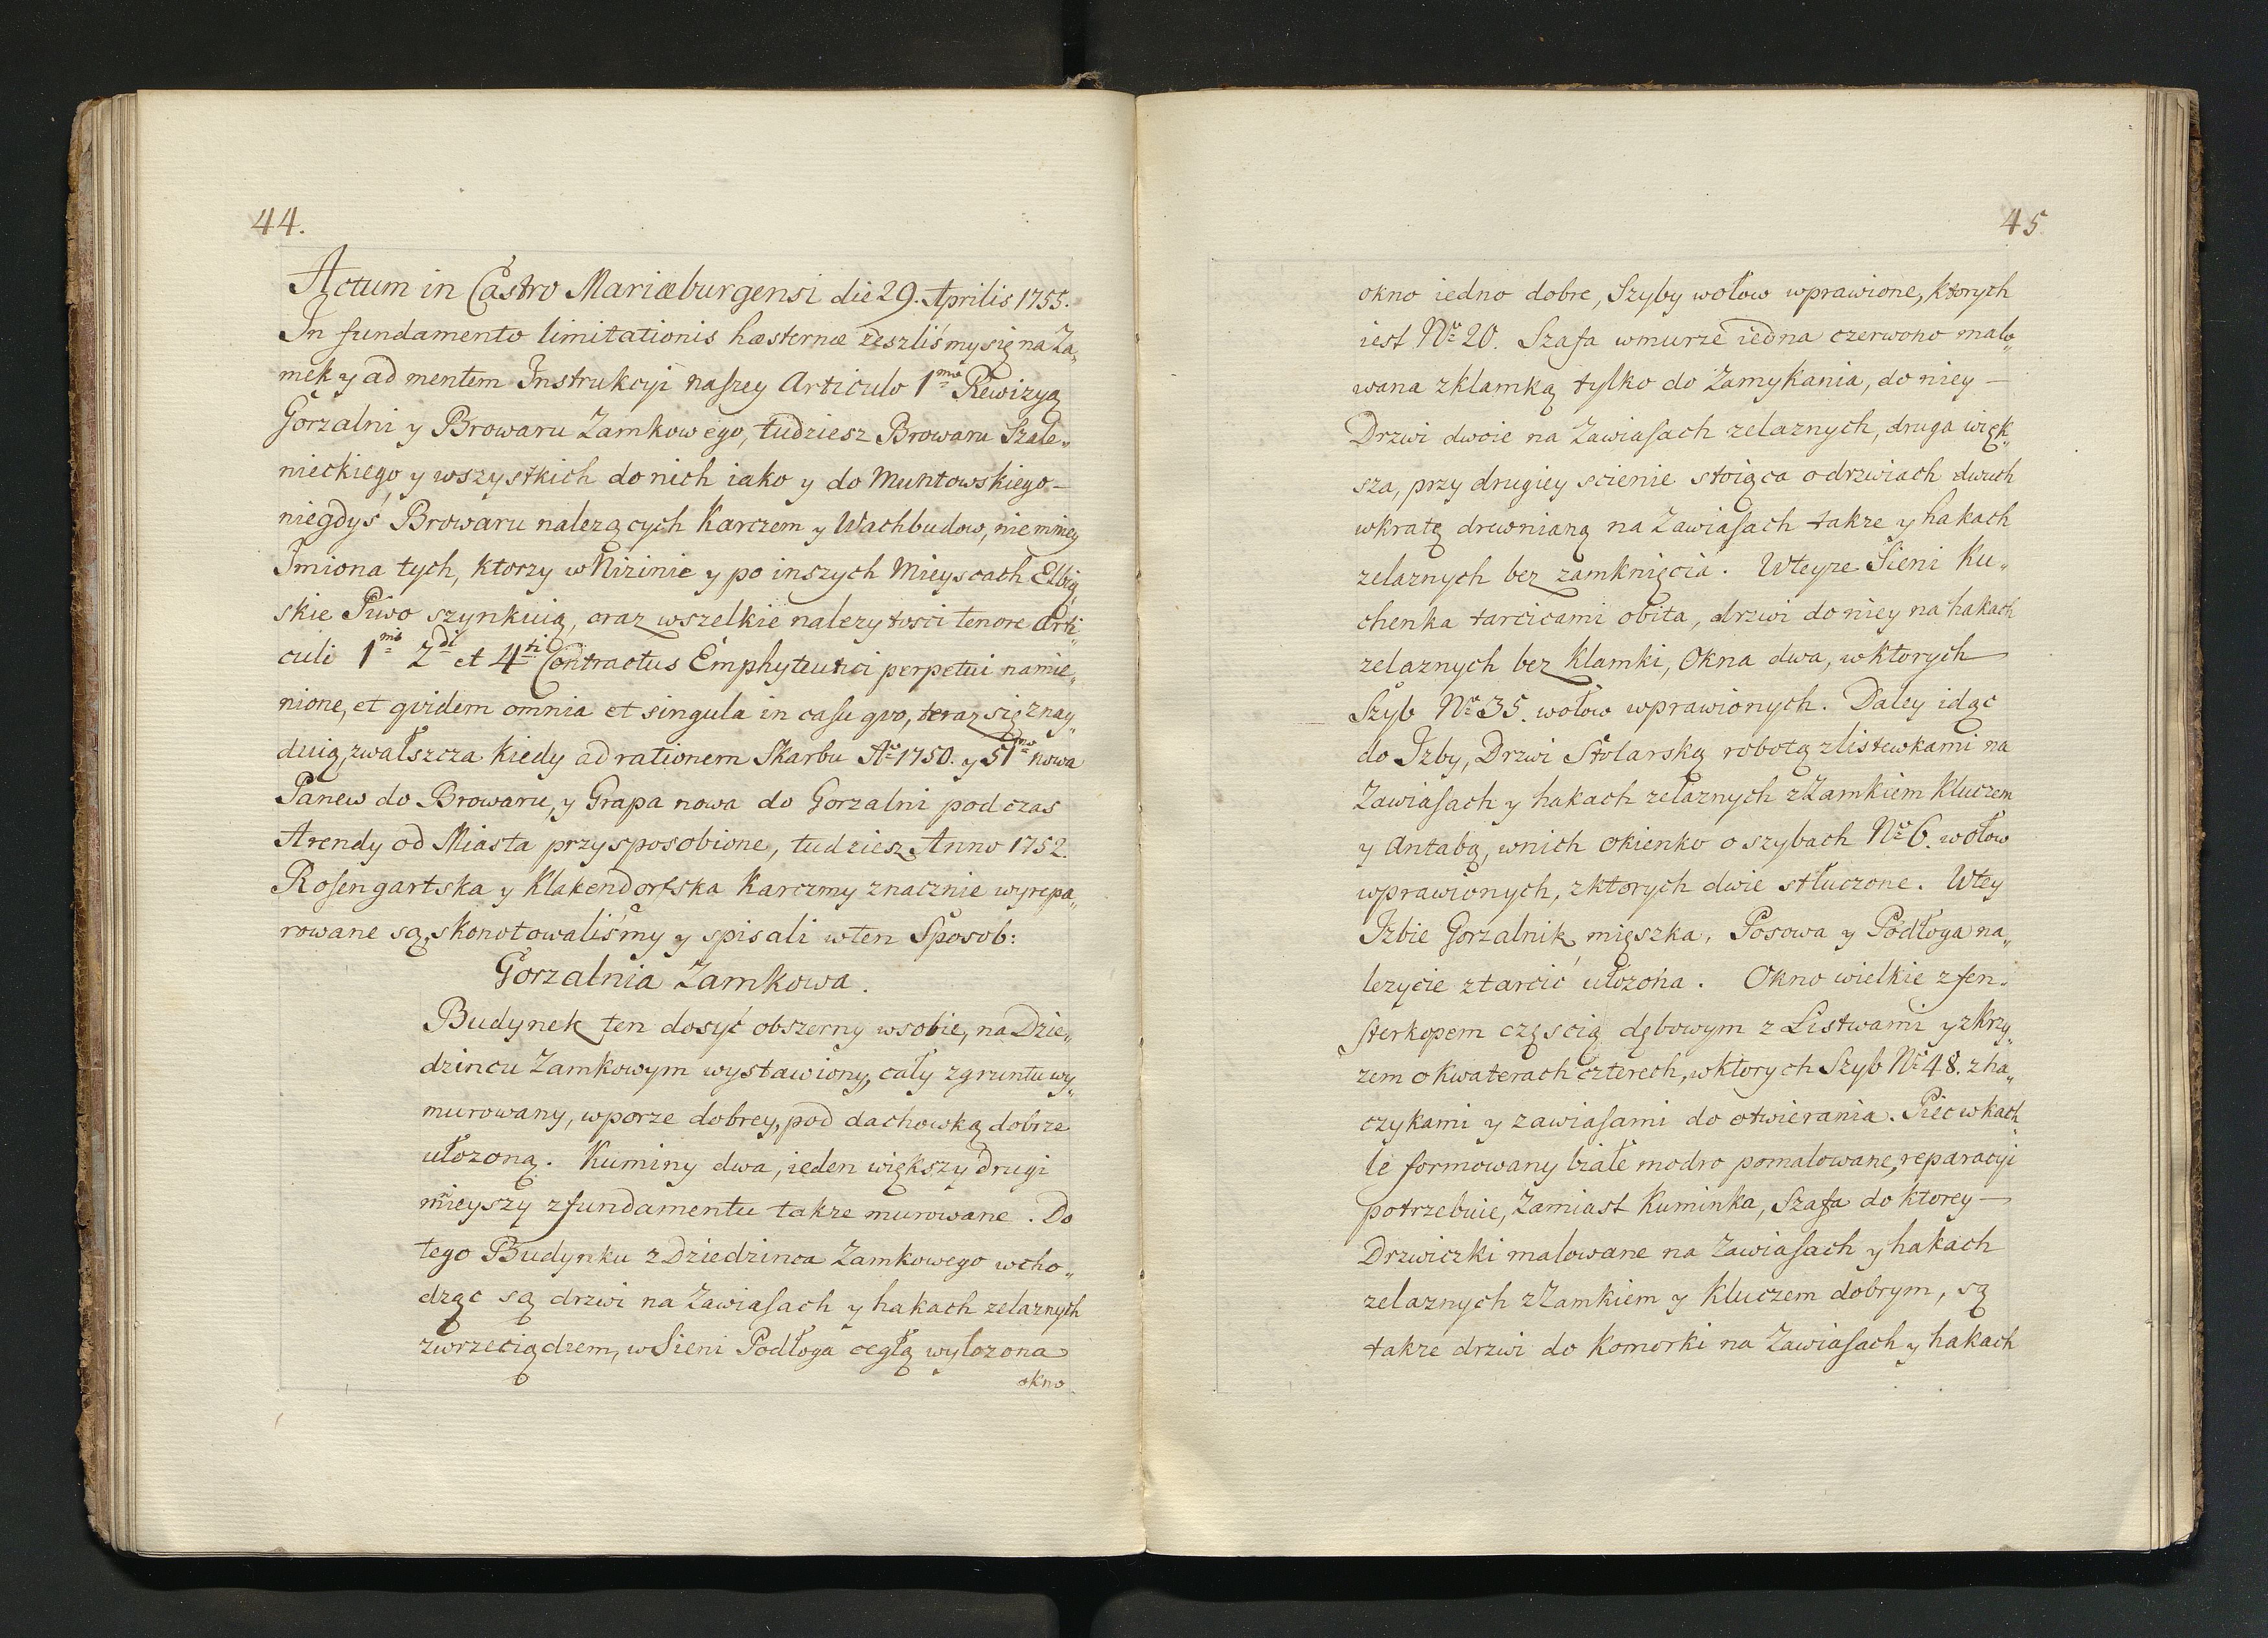 44.
Actum in Castro Mariæburgensi die 29. Aprilis 1755.
In fundamento limitationis hæsternæ zeszliśmy się na Za„
mek y ad mentem Instrukcyi naszey Articulo 1mo Rewizyą
Gorzalni y Browaru Zamkowego, tudziesz Browaru Szale„
nieckiego y wszystkich do nich iako y do Muntowskiego —
niegdyś Browaru nalezących Karczem y Wachbudow, nie mniey
Imiona tych, ktorzy w Nizinie y po inszych Mieyscach Elbią„
skie Piwo szynkuią, oraz wszelkie nalezytosci tenore Arti„
culi 1mi 2di et 4ti Contractus Emphyteutici perpetui namie„
nione, et qvidem omnia et singula in casu qvo, teraz się znay„
duią, zwałszcza kiedy ad rationem Skarbu Ao 1750. y 51mo nowa
Panew do Browaru, y Grapa nowa do Gorzalni pod czas
Arendy od Miasta przysposobione, tudziesz Anno 1752.
Rosengartska y Klakendorfska Karczmy znacznie wyrepa„
rowane są, skonotowaliśmy y spisali w ten Sposob:
Gorzalnia Zamkowa.
Budynek ten dosyć obszerny w sobie, na Dzie„
dzincu Zamkowym wystawiony, cały z gruntu wy„
murowany, w porze dobrey, pod dachowką dobrze
ułozoną. Kuminy dwa, ieden większy drugi
mnieyszy z fundamentu takze murowane. Do
tego Budynku z Dziedzinca Zamkowego wcho„
dząc są drzwi na Zawiasach y hakach zelaznych
z wrzeciądzem, w Sieni Podłoga cegłą wylozona
okno
45
okno iedno dobre, Szyby wołow wprawione, ktorych
iest No 20. Szafa w murze iedna czerwono malo„
wana z klamką tylko do Zamykania, do niey —
Drzwi dwoie na Zawiasach zelaznych, druga więk„
sza, przy drugiey scienie stoiąca o drzwiach dwuch
w kratę drewnianą na Zawiasach takze y hakach
zelaznych bez zamknięcia. W teyze Sieni Ku„
chenka tarcicami obita, drzwi do niey na hakach
zelaznych bez Klamki, Okna dwa, w ktorych —
Szyb No 35. wołow wprawionych. Daley idąc
do Izby, Drzwi Stolarską robotą z listewkami na
Zawiasach y hakach zelaznych z Zamkiem Kluczem
y Antabą, w nich okienko o szybach No 6. wołow
wprawionych, z ktorych dwie stłuczone. W tey
Izbie Gorzalnik mięszka, Posowa y Podłoga na„
lezycie z tarcić ułozona. Okno wielkie z fen„
sterkopem częscią dębowym z Listwami y z krzy„
zem o Kwaterach czterech, w ktorych Szyb No 48. z ha„
czykami y zawiasami do otwierania. Piec w kach„
le formowany białe modro pomalowane, reparacyi
potrzebuie, Zamiast Kuminka, Szafa do ktorey —
Drzwiczki malowane na Zawiasach y hakach
zelaznych z Zamkiem y Kluczem dobrym, są
takze drzwi do Komorki na Zawiasach y hakach